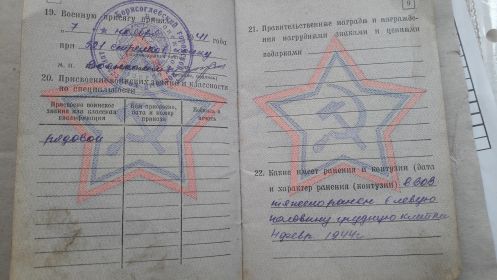 19. Военную присягу принял
"7" ноября 1941 года
при 521 стрелков. полку
м. п. Военком
20. Присвоение воинских званий и классности
по специальности
Присвоено воинское
звание или классная
квалификация
Кем присвоено,
дата и номер
приказа
Подпись и
печать
рядовой
9
21. Правительственные награды и награжде-
ния нагрудными знаками и ценными
подарками
22. Какие имеет ранения и контузии (дата
и характер ранения (контузии) в ВОВ
тяжело ранен в левую
половину грудную клетки
4 февр. 1944 г